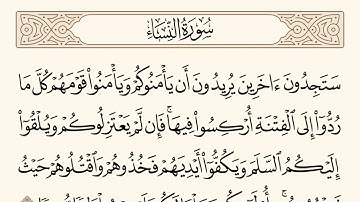 سُورَةُ النِّسَاءِ
سَتَجِدُونَ ءَاخَرِينَ يُرِيدُونَ أَن يَأْمَنُوكُمْ وَيَأْمَنُوا۟ قَوْمَهُمْ كُلَّ مَا
رُدُّوٓا۟ إِلَى ٱلْفِتْنَةِ أُرْكِسُوا۟ فِيهَا ۚ فَإِن لَّمْ يَعْتَزِلُوكُمْ وَيُلْقُوٓا۟
إِلَيْكُمُ ٱلسَّلَمَ وَيَكُفُّوٓا۟ أَيْدِيَهُمْ فَخُذُوهُمْ وَٱقْتُلُوهُمْ حَيْثُ